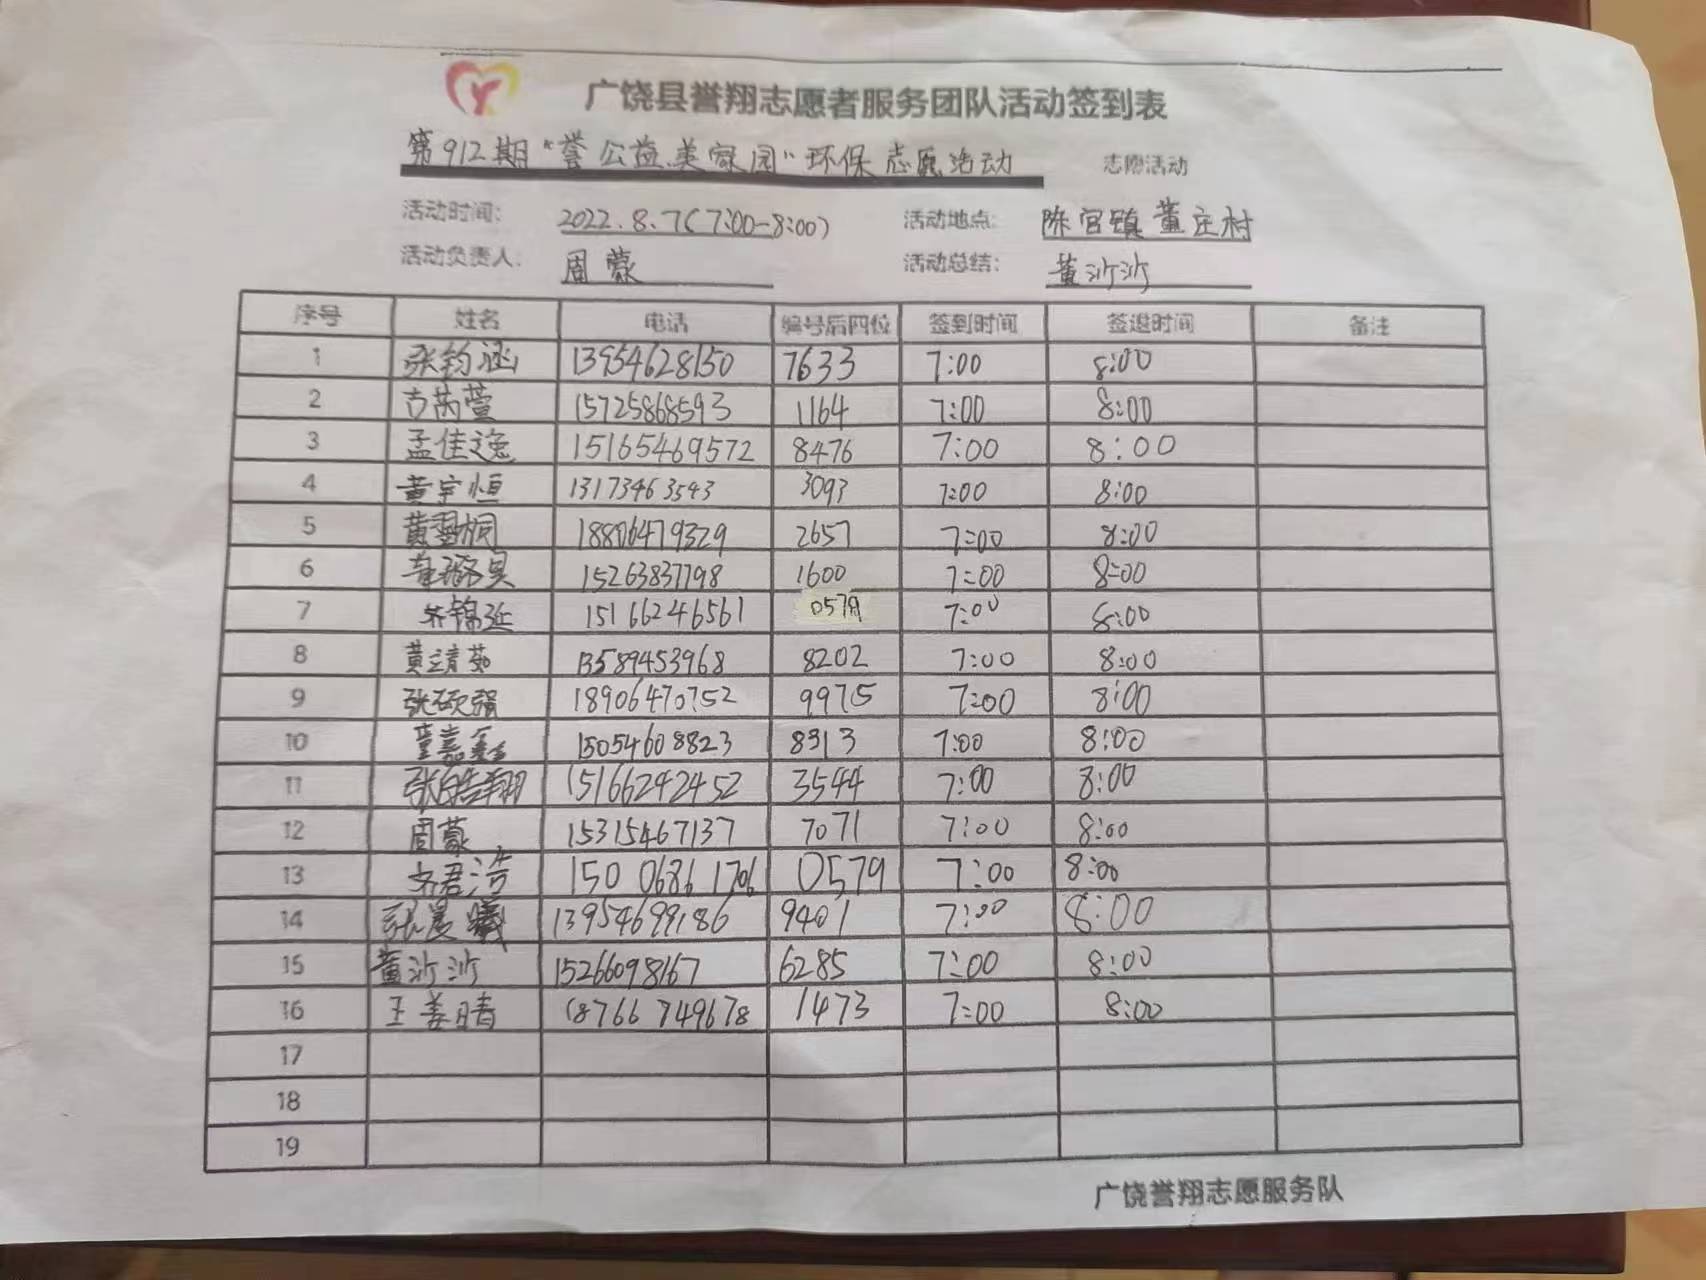 广饶县誉翔志愿者服务团队活动签到表
第912期"誉公益.美家园"环保志愿活动 志愿活动
活动时间: 2022.8.7(7:00-8:00) 活动地点: 陈官镇董庄村
活动负责人: 周蒙 活动总结: 黄沙沙
序号 姓名 电话 编号后四位 签到时间 签退时间 备注
1 张钧涵 13954628150 7633 7:00 8:00
2 古芮萱 15725868593 1164 7:00 8:00
3 孟佳逸 15165469572 8476 7:00 8:00
4 黄宇恒 13173463543 3093 7:00 8:00
5 黄翌桐 18806479329 2657 7:00 8:00
6 15263837798 1600 7:00 8:00
7 齐锦延 15166246561 7:00 8:00
8 黄靖茹 13589453968 8202 7:00 8:00
9 张硕强 18906470752 9975 7:00 8:00
10 董嘉鑫 15054608823 8313 7:00 8:00
11 张皓翔 15166242452 3544 7:00 8:00
12 周蒙 15315467137 7071 7:00 8:00
13 齐君浩 15006861706 0579 7:00 8:00
14 张晨曦 13954699186 9401 7:00 8:00
15 黄沙沙 15266098167 6285 7:00 8:00
16 王姜晴 18766749678 1473 7:00 8:00
17
18
19
广饶誉翔志愿服务队